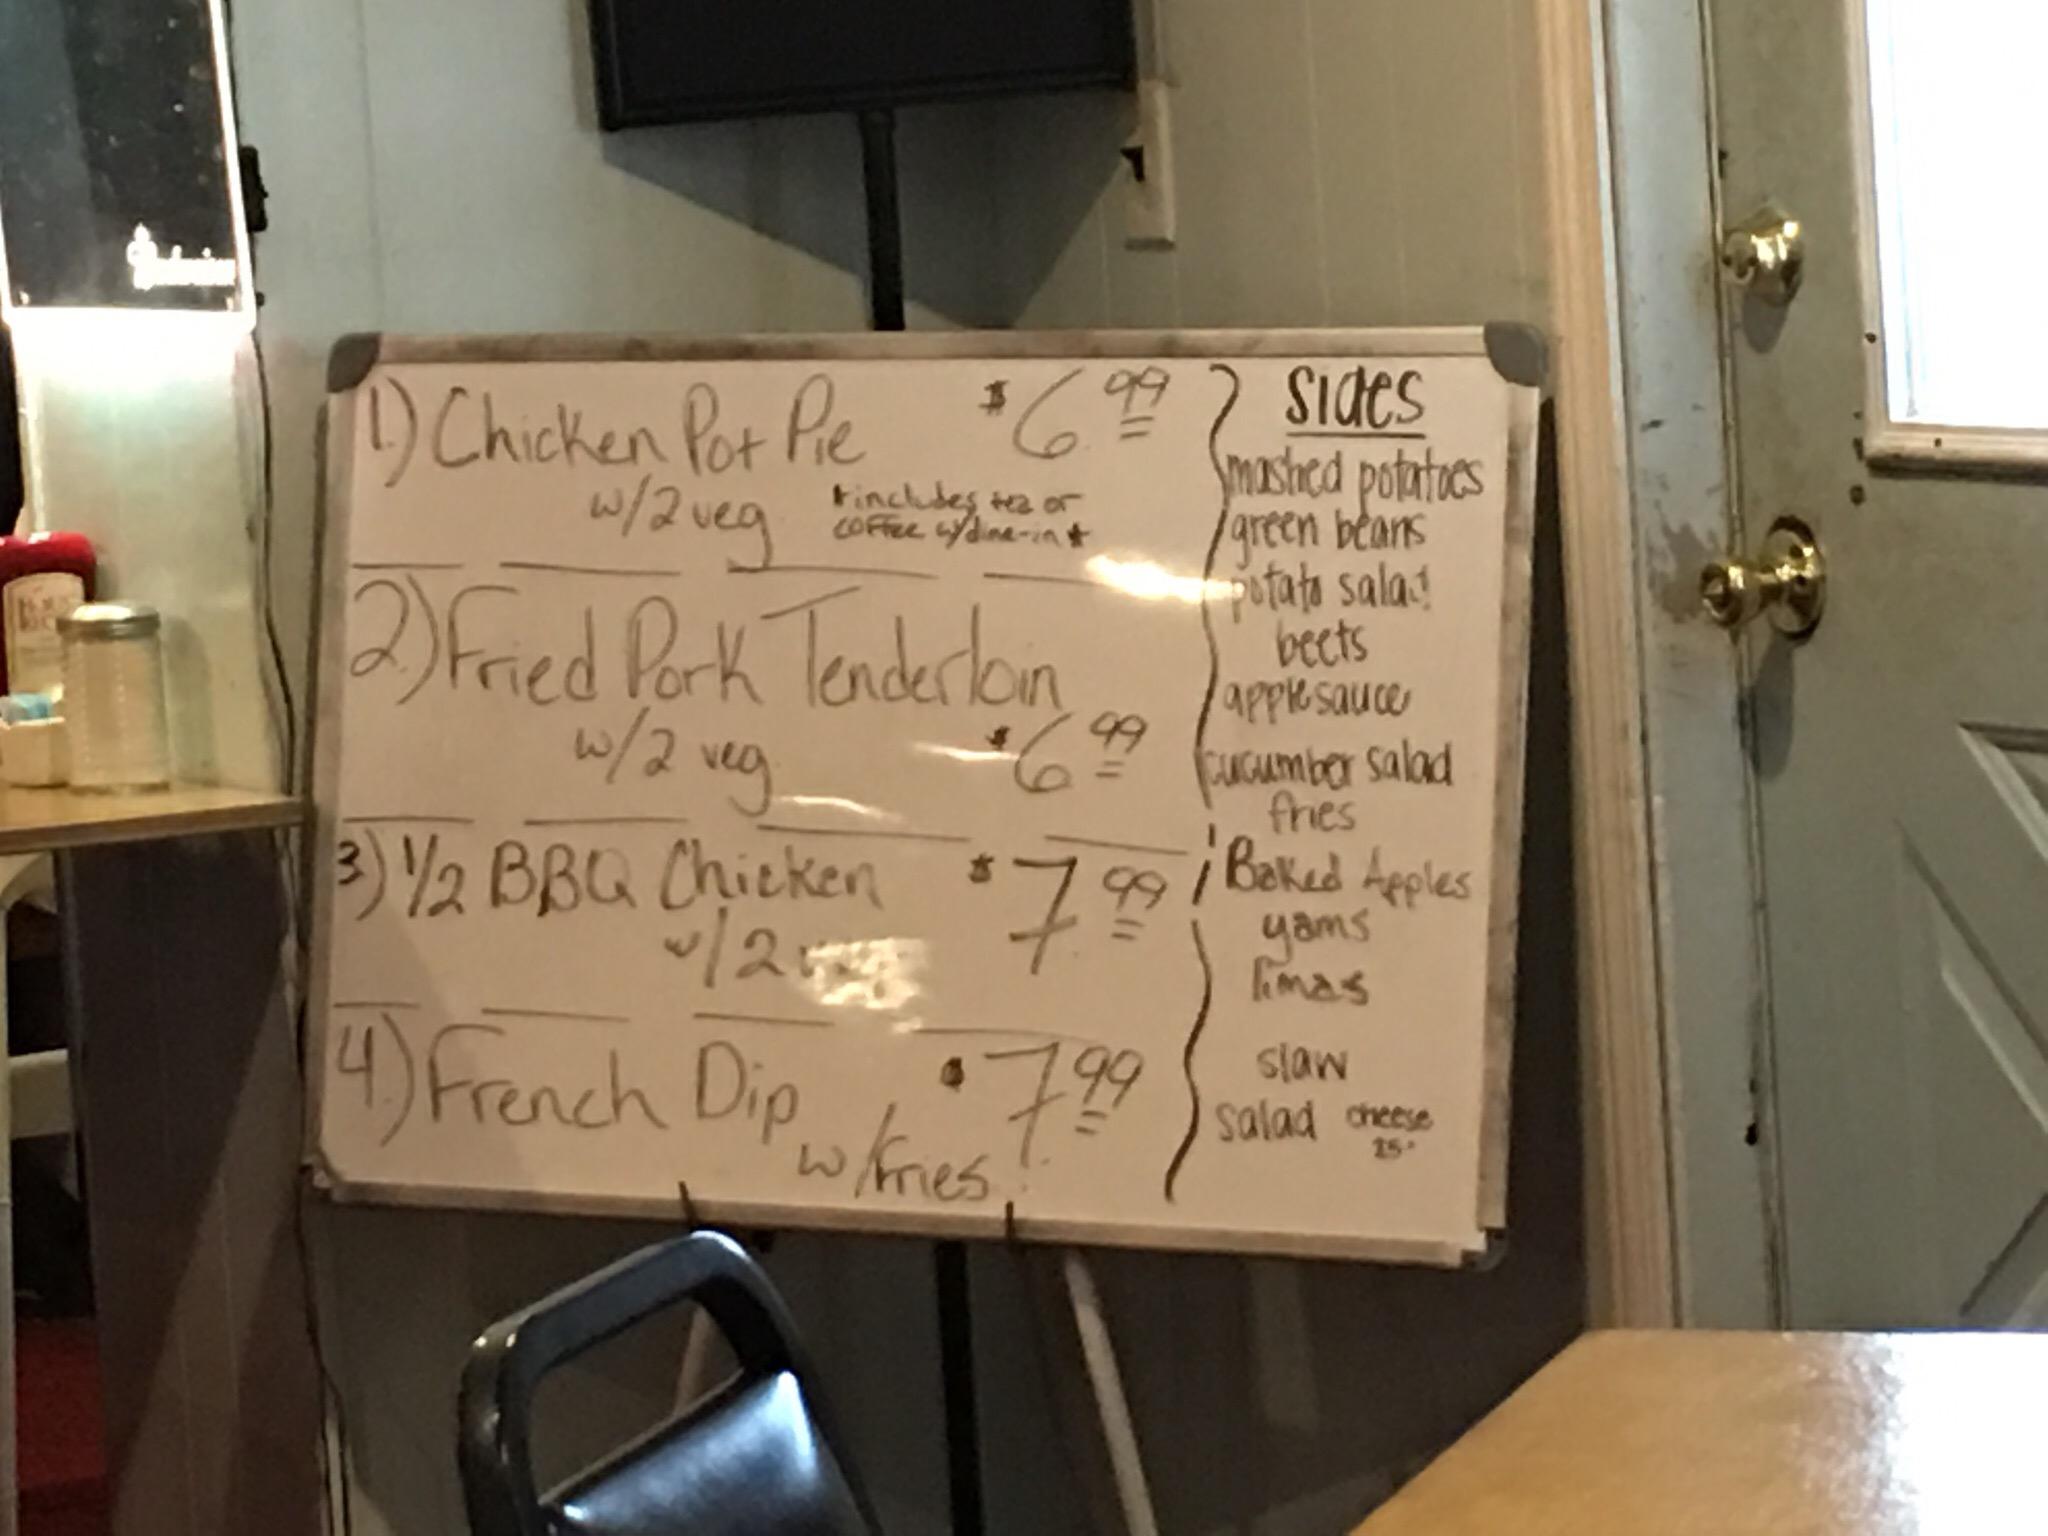 1.) Chicken Pot Pie $6 99
w/2 veg
*includes tea or
coffee w/dine-in*
2.) Fried Pork Tenderloin
w/2 veg $6 99
3) 1/2 BBQ Chicken $7 99
w/2
4.) French Dip $7 99
w/fries
sides
mashed potatoes
green beans
potato salad
beets
applesauce
cucumber salad
fries
Baked Apples
yams
limas
slaw
salad cheese